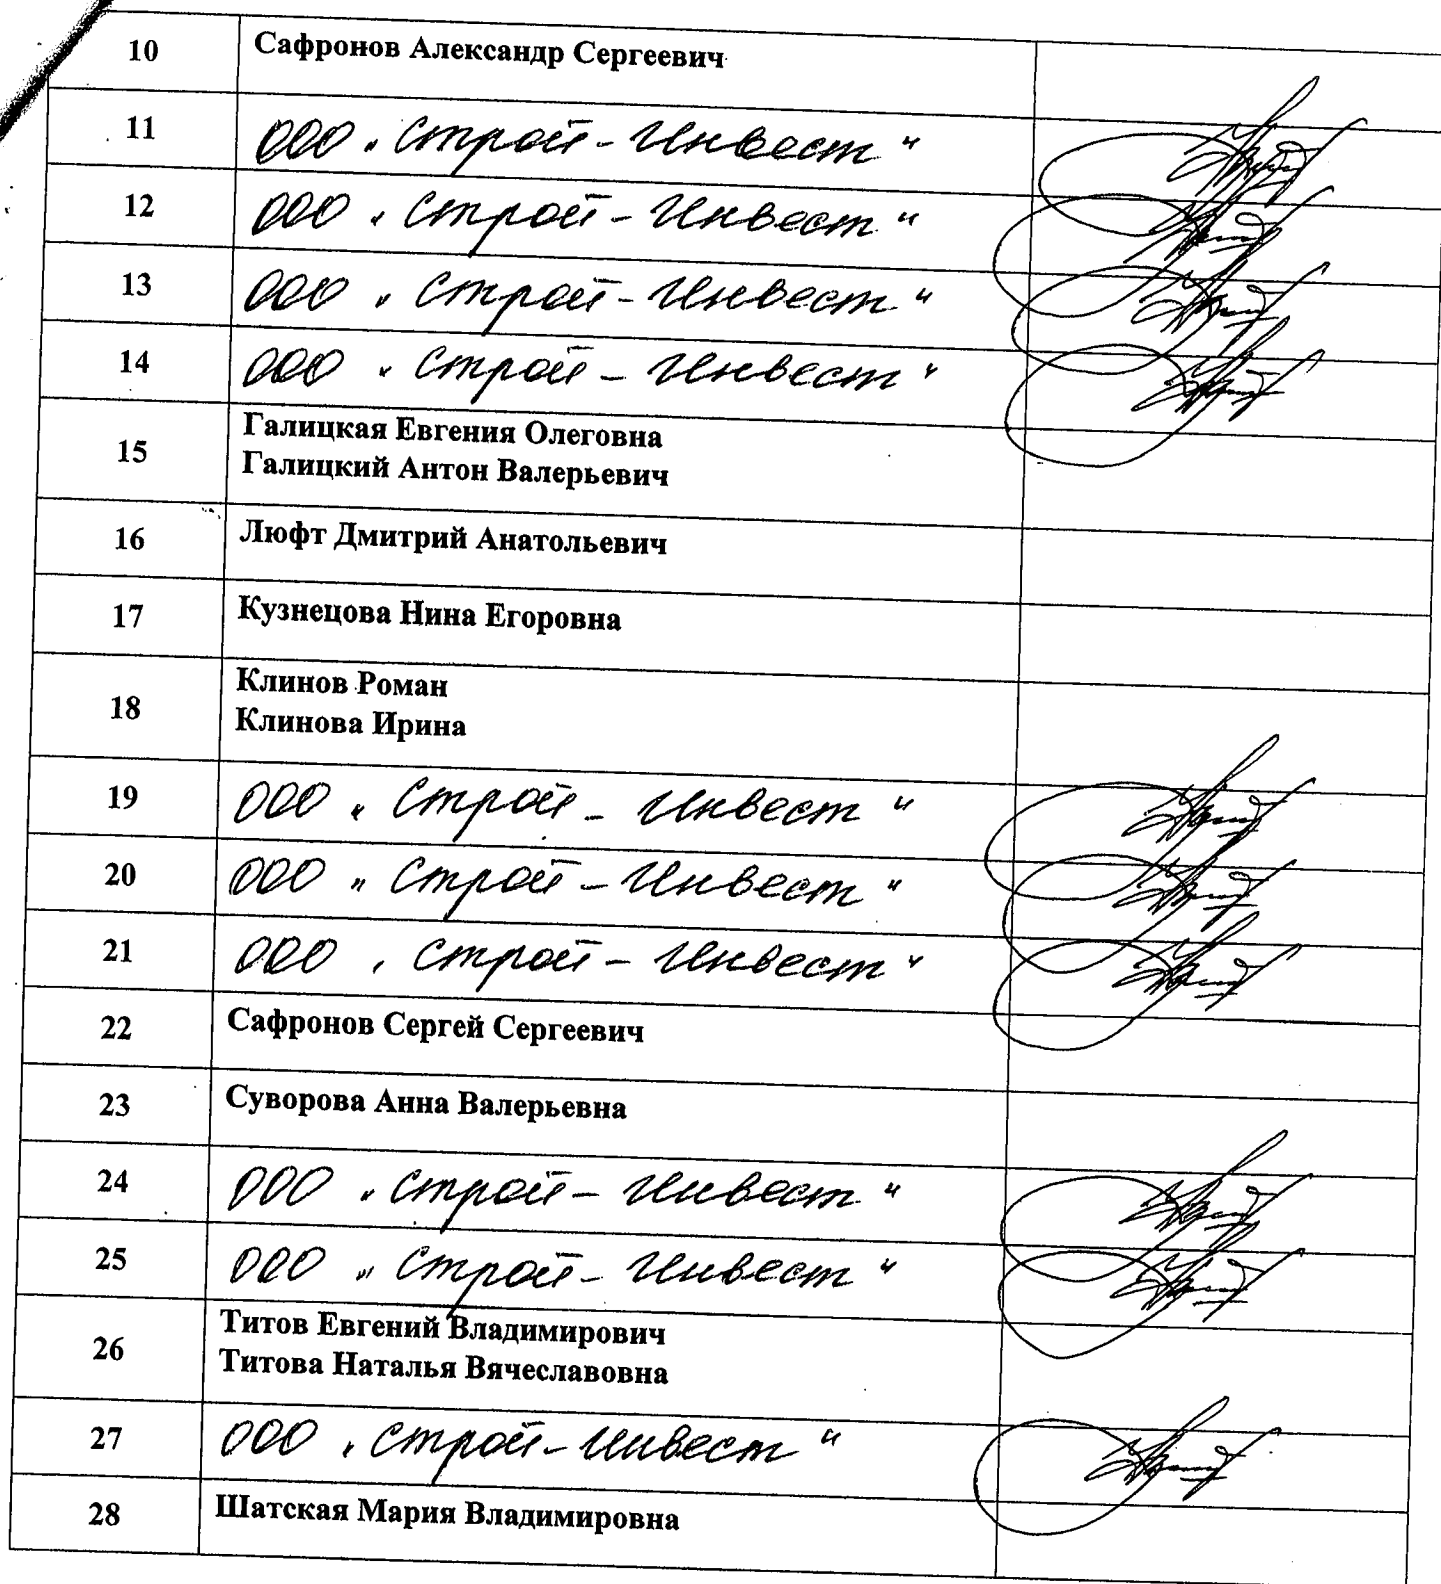 10 Сафронов Александр Сергеевич
11 ООО "Строй-Инвест"
12 ООО "Строй-Инвест"
13 ООО "Строй-Инвест"
14 ООО "Строй-Инвест"
15 Галицкая Евгения Олеговна
Галицкий Антон Валерьевич
16 Люфт Дмитрий Анатольевич
17 Кузнецова Нина Егоровна
18 Клинов Роман
Клинова Ирина
19 ООО "Строй-Инвест"
20 ООО "Строй-Инвест"
21 ООО "Строй-Инвест"
22 Сафронов Сергей Сергеевич
23 Суворова Анна Валерьевна
24 ООО "Строй-Инвест"
25 ООО "Строй-Инвест"
26 Титов Евгений Владимирович
Титова Наталья Вячеславовна
27 ООО "Строй-Инвест"
28 Шатская Мария Владимировна